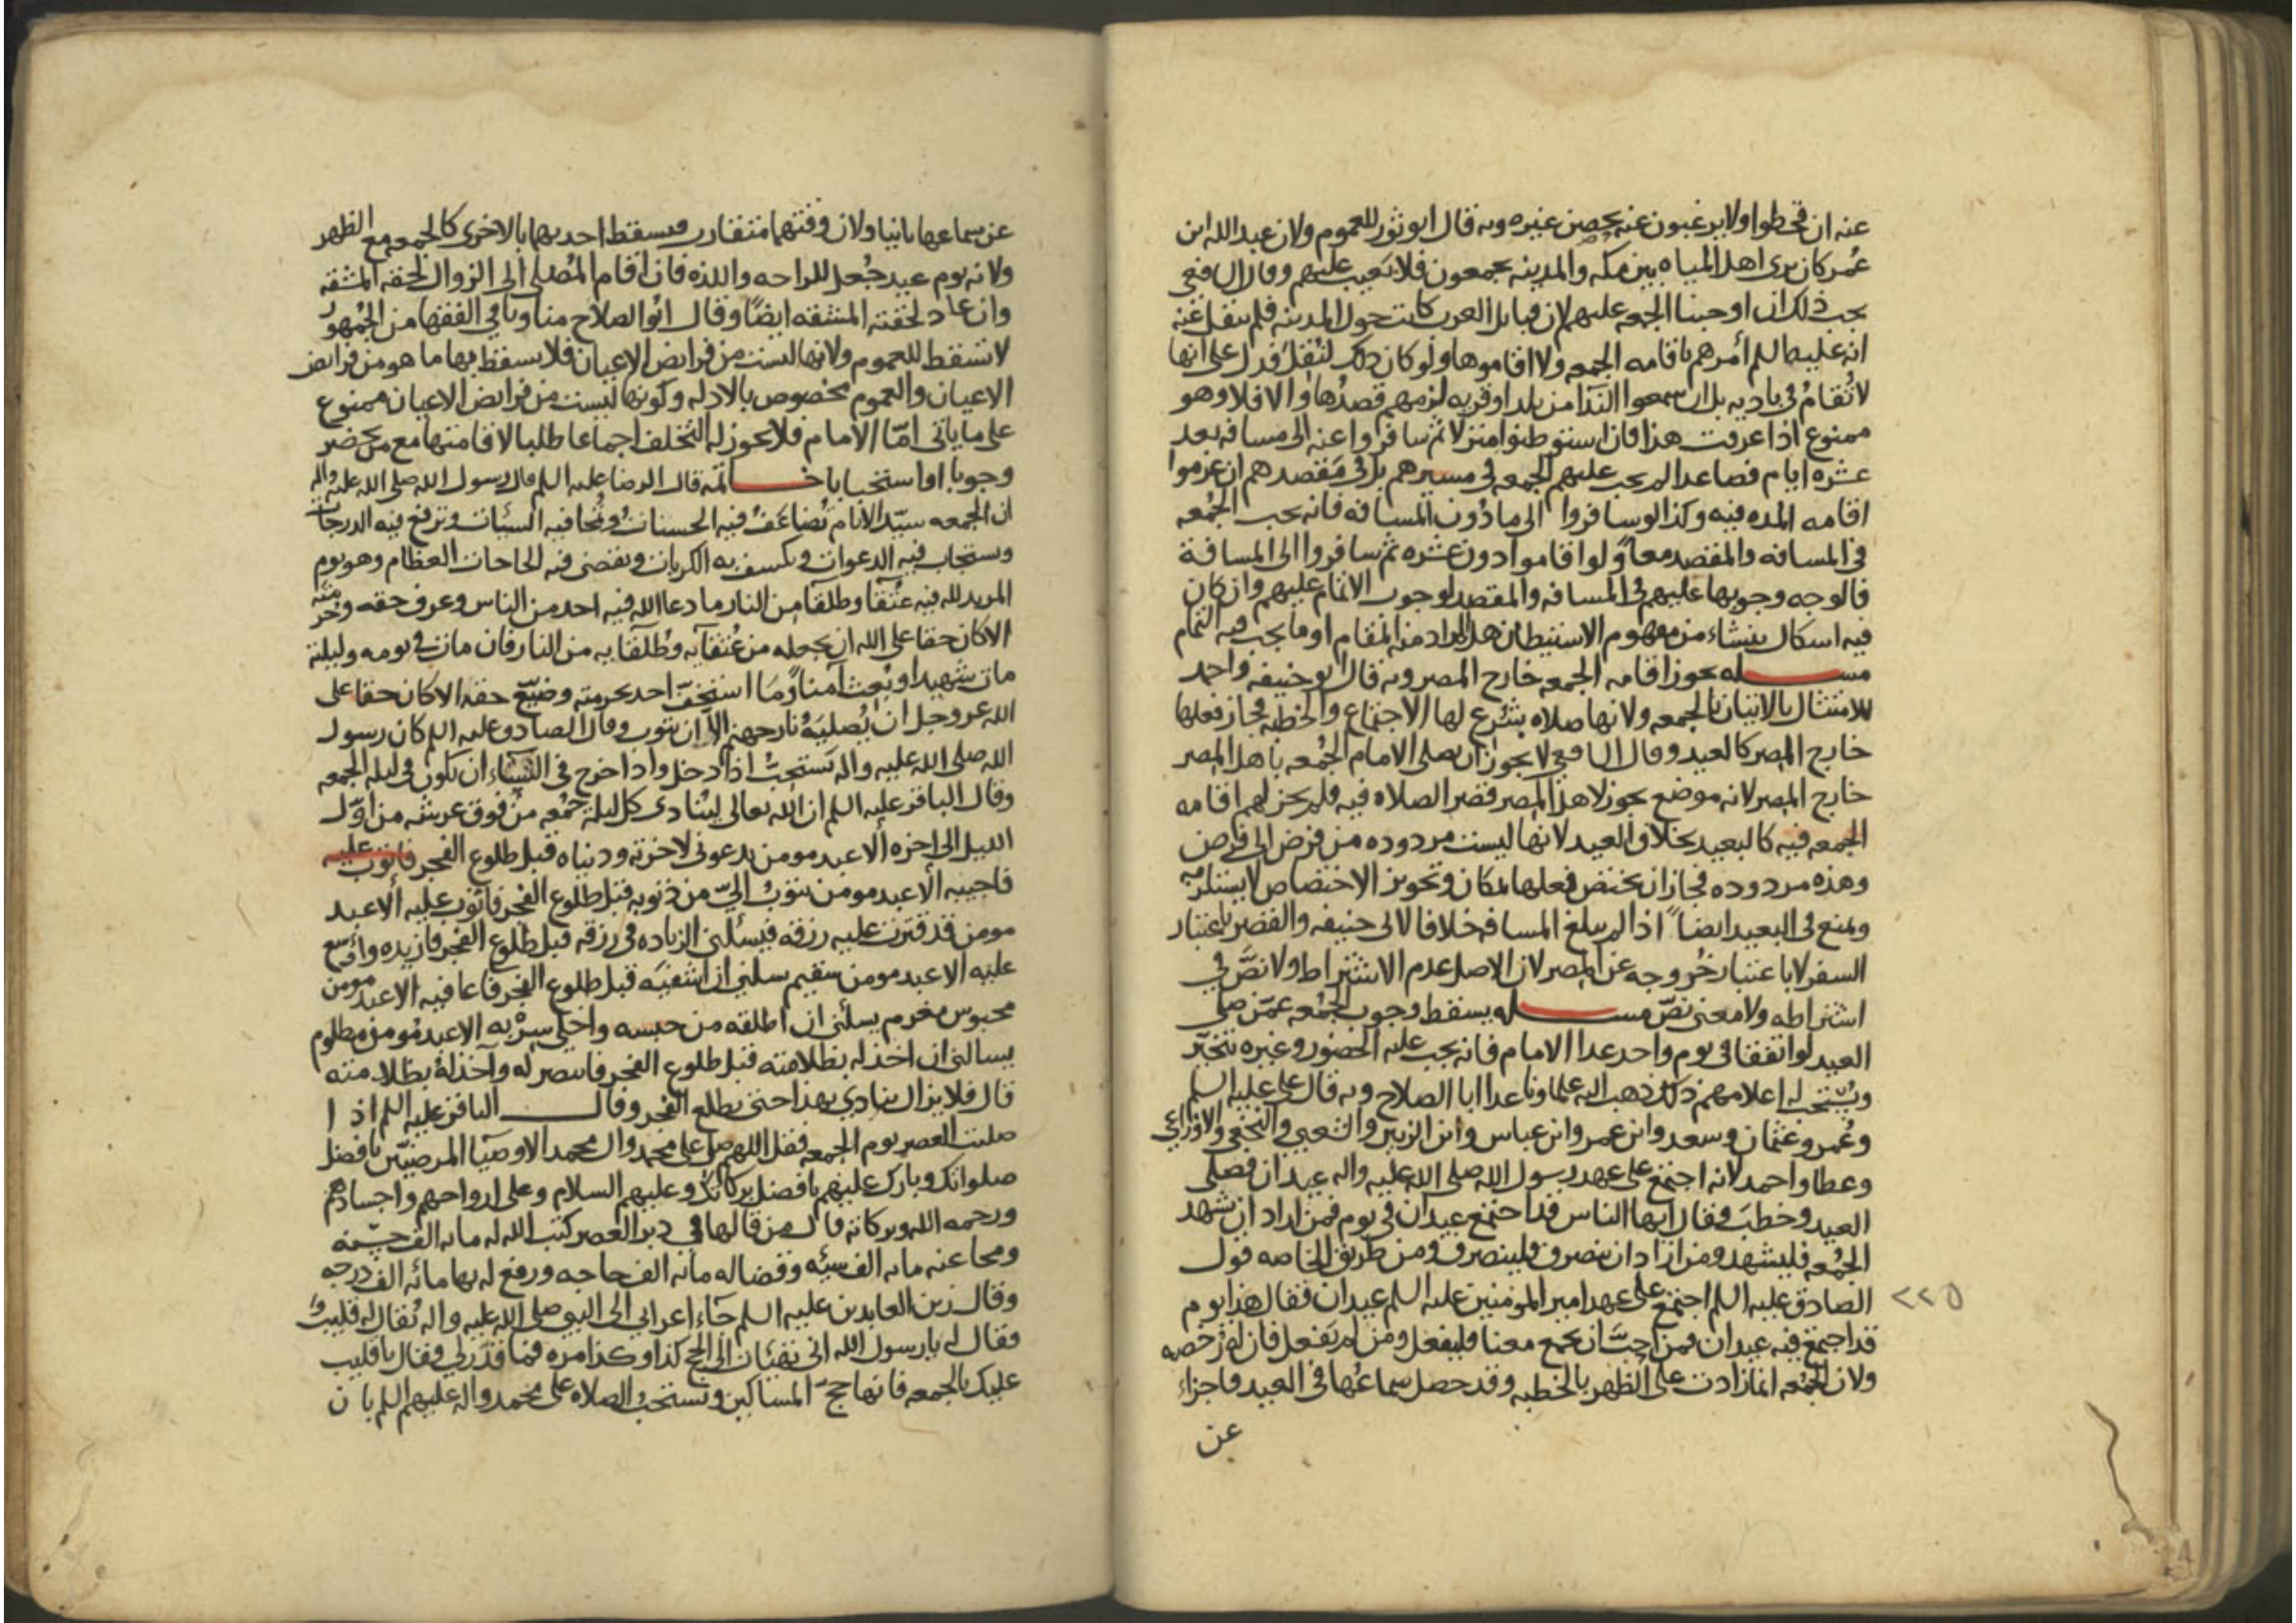 عنه ان قحطوا ولا يرغبون عنه بخصب غيره وبه قال ابو ثور للعموم ولان عبد الله ابن
عُمر كان يرى اهل المياه بين مكه والمدينه يجمعون فلا يعيب عليهم وقال الشافعي
يجب ذلك ان اوجبنا الجمعه عليهم لان قبايل العرب كانت حول المدينه فلم ينقل عنه
انه عليه السلم أمرهم باقامه الجمعه ولا اقاموها ولو كان ذلك لنُقل فدل على انها
لا تُقامُ في باديه بل ان سمعوا الندآ من بلد او قريه لزمهم قصدُها والا فلا وهو
ممنوع اذا عرفت هذا فان استوطنوا منزلا ثم سافروا عنه الى مسافه بعد
عشره ايام فصاعدا لم يجب عليهم الجمعه في مسيرهم بل في مقصدهم ان عزموا
اقامه المده فيه وكذا لو سافروا الى ما دُون المسافه فانه يجب الجُمعه
في المسافه والمقصد معاً ولو اقاموا دون عشره ثم سافروا الى المسافة
فالوجه وجوبها عليهم في المسافه والمقصد لوجوب الاتمام عليهم وان كان
فيه اشكال ينشاء من مفهوم الاستيطان هل المراد منه المقام او ما يجب فيه التمام
مسله يجوز اقامه الجمعه خارج المصر وبه قال ابو حنيفه واحمد
للامتثال بالاتيان بالجمعه ولانها صلاه يشرع لها الاجتماع والخطبه فجاز فعلها
خارج المصر كالعيد وقال الشافعي لا يجوز ان يصلى الامام الجُمعه باهل المصر
خارج المصر لانه موضع يجوز لاهل المصر قصر الصلاه فيه فلم يجز لهم اقامه
الجمعه فيه كالبعيد بخلاف العيد لانها ليست مردوده من فرض الى فرض
وهذه مردوده فجاز ان يختص فعلها بمكان وتجويز الاختصاص لا يستلزمه
ويمنع في البعيد ايضاً اذا لم يبلغ المسافه خلافا لابى حنيفه والقصر باعتبار
السفر لا باعتبار خُروجه عن المصر لان الاصل عدم الاشتراط ولا نصَّ في
اشتراطه ولا معنى نصّ مسله يسقط وجوب الجُمعه عمّن صلى
العيد لو اتفقا في يوم واحد عدا الامام فانه يجب عليه الحُضور وغيره يتخيّر
ويُستحب له اعلامهم ذلك ذهب اليه علماونا عدا ابا الصلاح وبه قال علي عليه السلم
وعُمر وعثمان وسعد وابن عمر وابن عباس وابن الزبير والشعبي والنخعي والاوزاعي
وعطا واحمد لانه اجتمع على عهد رسول الله صلى الله عليه واله عيدان فصلى
العيد وخطب فقال ايها الناس قد اجتمع عيدان في يوم فمن اراد ان يشهد
الجُمعه فليشهد ومن اراد ان ينصرف فلينصرف ومن طريق الخاصه قول
الصادق عليه السلم اجتمع على عهد امير المومنين عليه السلم عيدان فقال هذا يوم
٢٢٥
قد اجتمع فيه عيدان فمن احبَّ ان يجمع معنا فليفعل ومن لم يفعل فان له رُخصه
ولان الجُمعه انما زادت على الظهر بالخطبه وقد حصل سماعُها في العيد فاجزاء
عن
عن سماعها ثانيا ولان وقتهما متقارب فيسقط احديهما بالاخرى كالجمعه مع الظهر
ولانه يوم عيد جُعل للراحه واللذه فان اقام المُصلى الى الزوال لحقه المشقه
وان عاد لحقته المشقه ايضًا وقال ابُو الصلاح منا وباقي الفقها من الجُمهور
لا تسقط للعموم ولانها ليست من فرايض الاعيان فلا يسقط بها ما هو من فرايض
الاعيان والعموم مخصوص بالادله وكونها ليست من فرايض الاعيان ممنوع
على ما ياتى امّا الامام فلا يجوز له التخلف اجماعا طلبا لاقامتها مع من يحضر
وجوبا او استحبابا خاتمه قال الرضا عليه السلم قال رسول الله صلى الله عليه واله
ان الجمعه سيّد الايام تُضاعَفُ فيه الحسناتُ وتُمحا فيه السيّات وترفع فيه الدرجات
وستجاب فيه الدعوات ويكسف به الكربات وتقضى فيه الحاجات العظام وهو يوم
المزيد لله فيه عُتقا وطلقا من النار ما دعا الله فيه احد من الناس وعرف حقه وحرمته
الا كان حقا على الله ان يجعله من عُتقآيه وطُلقآيه من النار فان مات في يومه وليلته
مات شهيدا وبُعث آمنا وما استخفّ احد بحرمته وضيّع حقه الا كان حقا على
الله عز وجل ان يُصليَهُ نار جهنم الا ان يتوب وقال الصادق عليه السلم كان رسول
الله صلى الله عليه واله يستحبُّ اذا دخل واذا خرج في الشتاء ان يكون في ليله الجمعه
وقال الباقر عليه السلم ان الله تعالى ليُنادى كل ليلة جمُعه من فوق عرشه من اوّل
الليل الى اخره ألا عبد مومن يدعونى لاخرته ودنياه قبل طلوع الفجر فاتوب عليه
فاجيبه ألا عبد مومن يتوبُ اليّ من ذنوبه قبل طلوع الفجر فاتوب عليه ألا عبد
مومن قد قترت عليه رزقه فيسألنى الزياده في رزقه قبل طلوع الفجر فازيده واوسع
عليه الا عبد مومن سقيم يسلني ان اشفيَه قبل طلوع الفجر فاعافيه الا عبد مومن
محبوس مغرم يسألنى ان اطلقه من حبسه واخلى سِرْبه الا عبد مُومن مظلوم
يسالنى ان اخذ له بظلامته قبل طلوع الفجر فانتصر له وآخذ لهُ بظلامته
قال فلا يزال ينادي بهذا حتى يطلع الفجر وقال الباقر عليه السلم اذا
صليت العصر يوم الجمعه فقل اللهم صل على محمد وال محمد الاوصيآ المرضيّين بافضل
صلواتك وبارك عليهم بافضل بركاتك وعليهم السلام وعلى ارواحهم واجسادهم
ورحمه الله وبركاته قال من قالها في دبر العصر كتب الله له مائه الف حسنه
ومحا عنه مائه الف سيئه وقضا له مائه الف حاجه ورفع له بها مائه الف درجه
وقال زين العابدين عليه السلم جآء اعرابي الى النبي صلى الله عليه واله يُقال له قليب
فقال له يا رسول الله انى تهيئات الى الحج كذا وكذا مره فما قُدّر لي فقال يا قليب
عليك بالجمعه فانها حجّ المساكين ويستحبُ الصلاه على محمد واله عليهم السلم بان